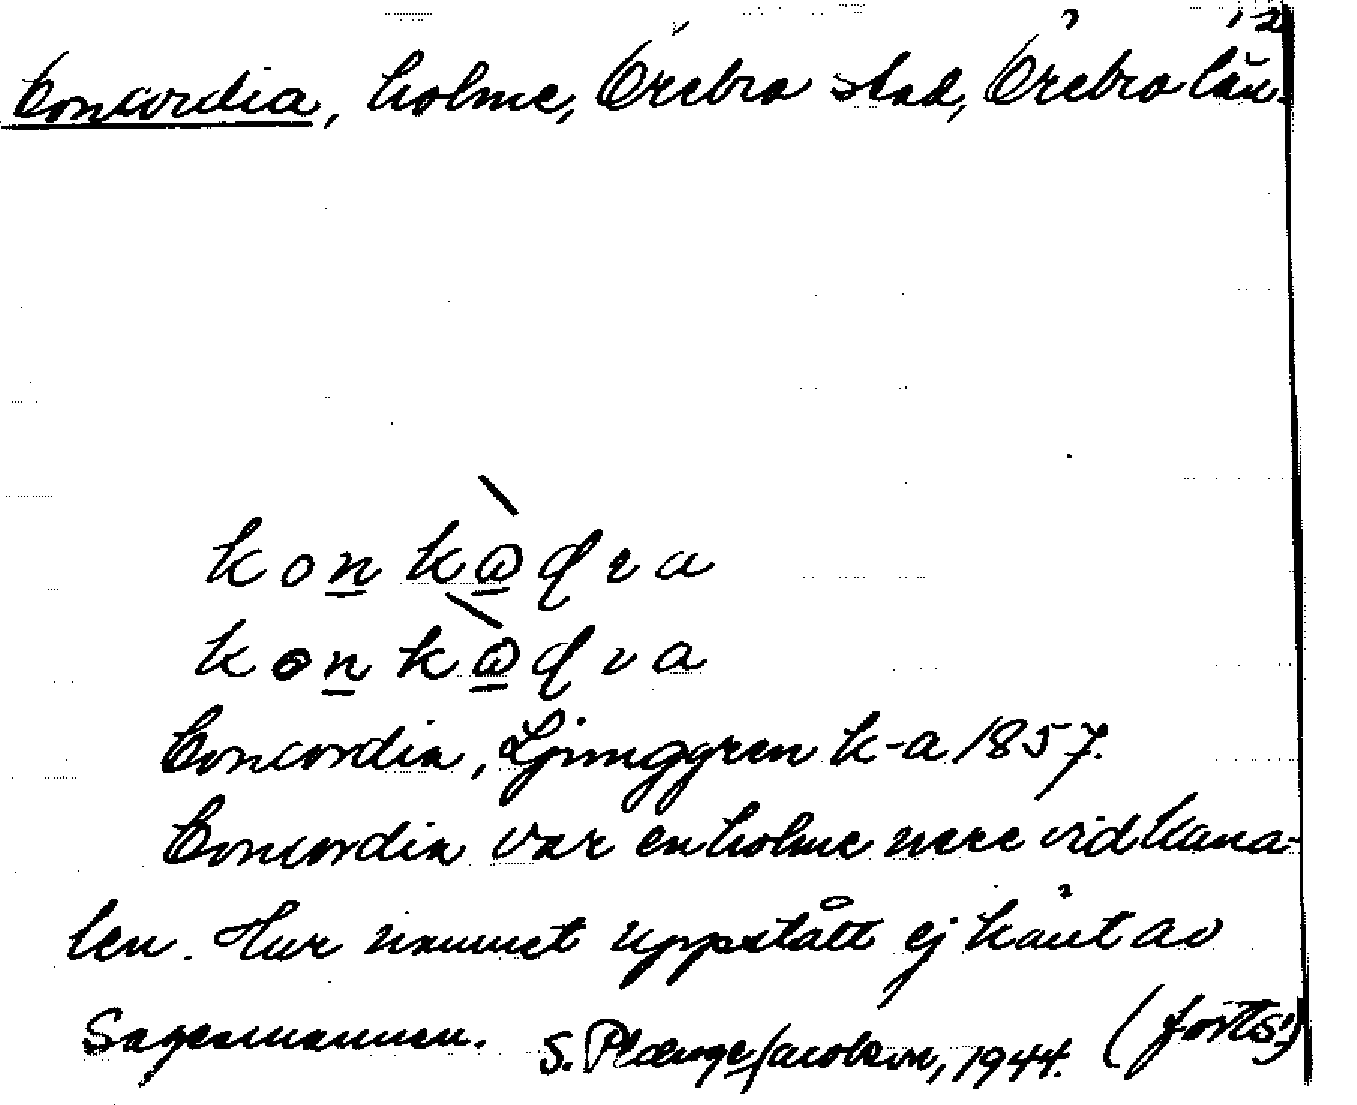 Concordia, holme, Örebro stad, Örebro län.
Concordia, Ljunggren k-a 1857.
Concordia var en holme nere vid kana-
len. Hur namnet uppstått ej känt av
Sagesmannen. S. Plænge Jacobson, 1944. (forts.)